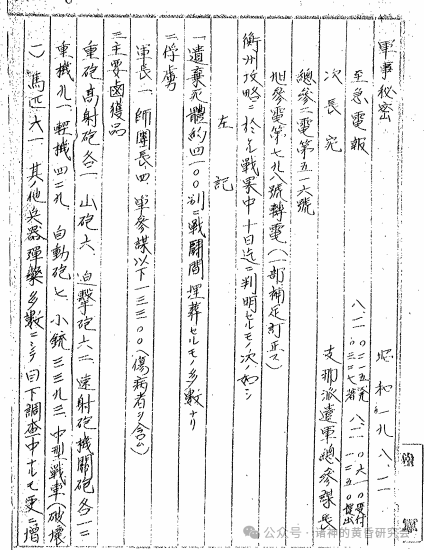 軍事秘密
昭和一九、八、一一
至急電報
八、一一 〇二一五発
八、一一 〇六一〇受付
次長宛
支那派遣軍總参謀長
總参電第五一六號
旭参電第七九八號轉電(一部補足訂正ス)
衡州攻略ニ於ケル戦果中十日迄ニ判明セルモノ次ノ如シ
左記
一、遺棄死體約四一〇〇別ニ戦闘間埋葬セルモノ多数ナリ
二、俘虜
軍長一、師團長四、軍参謀以下一三三〇〇(傷病者ヲ含ム)
三、主要鹵獲品
重砲、高射砲各一、山砲六、迫撃砲六二、速射砲、機關砲各一二
重機九一、輕機四二九、自動砲七、小銃三三九三、中型戦車(破壊
一)馬匹六一、其ノ他兵器彈藥多数ニシテ目下調査中ナルモ更ニ増
公众号·诸神的黄昏研究会